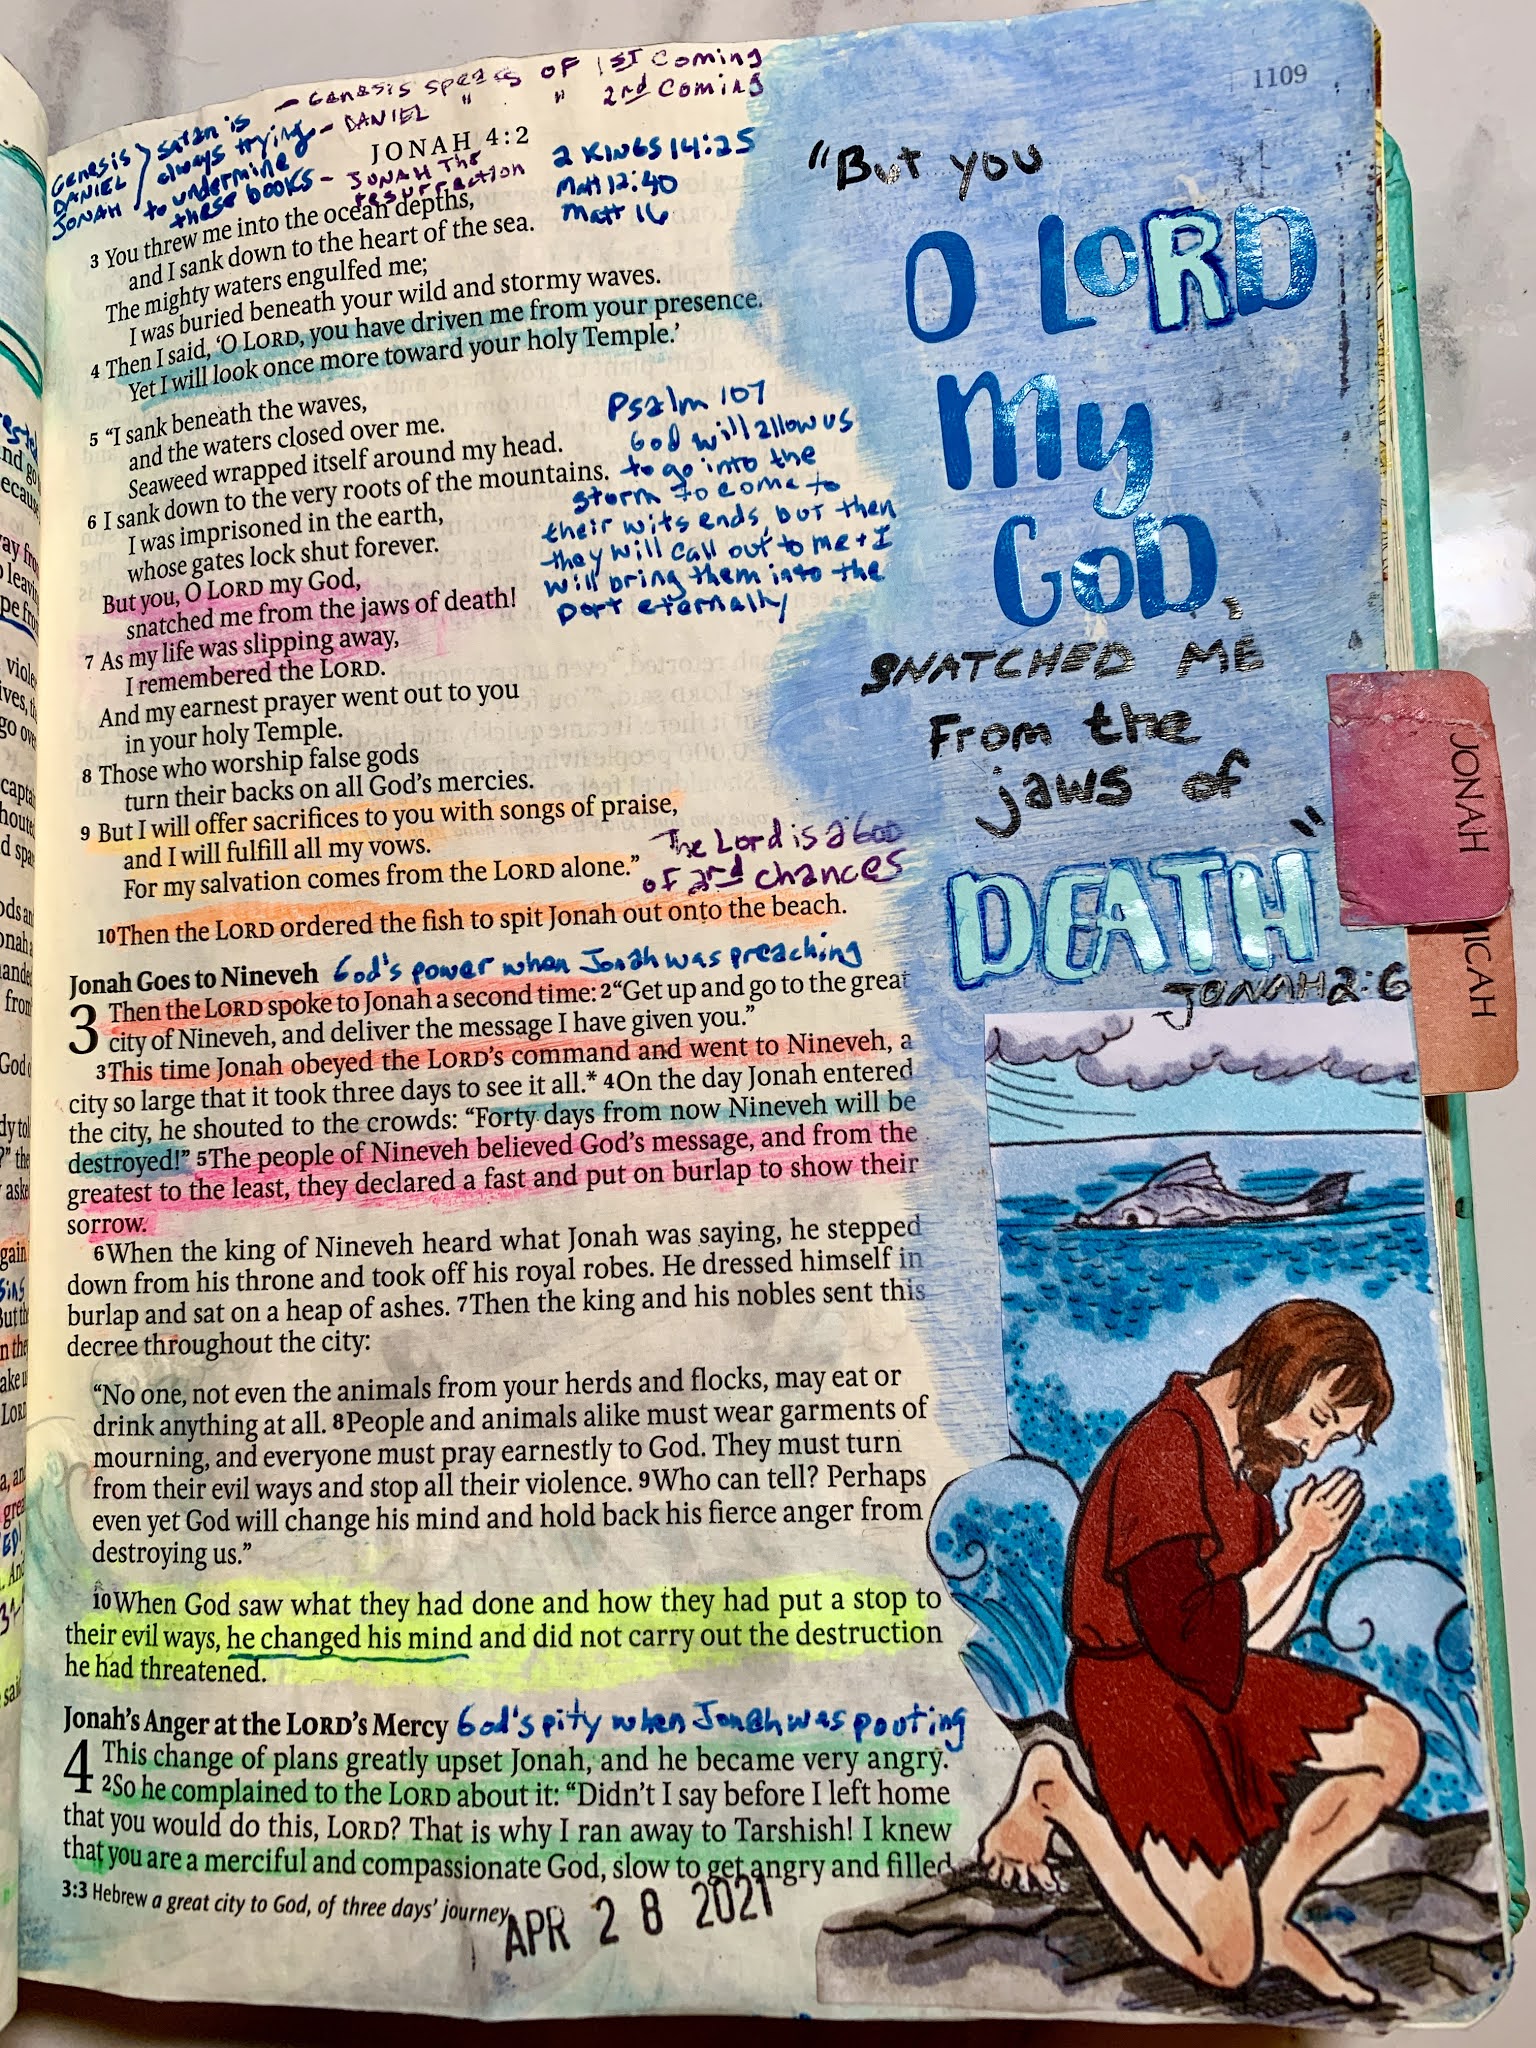 1109
- Genesis speaks of 1st coming
- DANIEL " " 2nd coming
Genesis
DANIEL
JONAH
Satan is
always trying
to undermine
these books
- JONAH The
resurrection
JONAH 4:2
2 KINGS 14:25
Matt 12:40
Matt 16
3 You threw me into the ocean depths,
and I sank down to the heart of the sea.
The mighty waters engulfed me;
I was buried beneath your wild and stormy waves.
4 Then I said, ‘O LORD, you have driven me from your presence.
Yet I will look once more toward your holy Temple.’
5 “I sank beneath the waves,
and the waters closed over me.
Seaweed wrapped itself around my head.
6 I sank down to the very roots of the mountains.
I was imprisoned in the earth,
whose gates lock shut forever.
But you, O LORD my God,
snatched me from the jaws of death!
7 As my life was slipping away,
I remembered the LORD.
And my earnest prayer went out to you
in your holy Temple.
8 Those who worship false gods
turn their backs on all God’s mercies.
9 But I will offer sacrifices to you with songs of praise,
and I will fulfill all my vows.
For my salvation comes from the LORD alone.”
10 Then the LORD ordered the fish to spit Jonah out onto the beach.
Psalm 107
God will allow us
to go into the
storm to come to
their wits ends, but then
they will call out to me + I
will bring them into the
port eternally
The Lord is a God
of 2nd chances
Jonah Goes to Nineveh God's power when Jonah was preaching
3 Then the LORD spoke to Jonah a second time: 2 “Get up and go to the great
city of Nineveh, and deliver the message I have given you.”
3 This time Jonah obeyed the LORD’s command and went to Nineveh, a
city so large that it took three days to see it all.* 4 On the day Jonah entered
the city, he shouted to the crowds: “Forty days from now Nineveh will be
destroyed!” 5 The people of Nineveh believed God’s message, and from the
greatest to the least, they declared a fast and put on burlap to show their
sorrow.
6 When the king of Nineveh heard what Jonah was saying, he stepped
down from his throne and took off his royal robes. He dressed himself in
burlap and sat on a heap of ashes. 7 Then the king and his nobles sent this
decree throughout the city:
“No one, not even the animals from your herds and flocks, may eat or
drink anything at all. 8 People and animals alike must wear garments of
mourning, and everyone must pray earnestly to God. They must turn
from their evil ways and stop all their violence. 9 Who can tell? Perhaps
even yet God will change his mind and hold back his fierce anger from
destroying us.”
10 When God saw what they had done and how they had put a stop to
their evil ways, he changed his mind and did not carry out the destruction
he had threatened.
Jonah’s Anger at the LORD’s Mercy God's pity when Jonah was pouting
4 This change of plans greatly upset Jonah, and he became very angry.
2 So he complained to the LORD about it: “Didn’t I say before I left home
that you would do this, LORD? That is why I ran away to Tarshish! I knew
that you are a merciful and compassionate God, slow to get angry and filled
3:3 Hebrew a great city to God, of three days’ journey
APR 28 2021
“But you
O LORD
My
GOD,
SNATCHED ME
From the
jaws of
DEATH”
JONAH 2:6
JONAH
MICAH